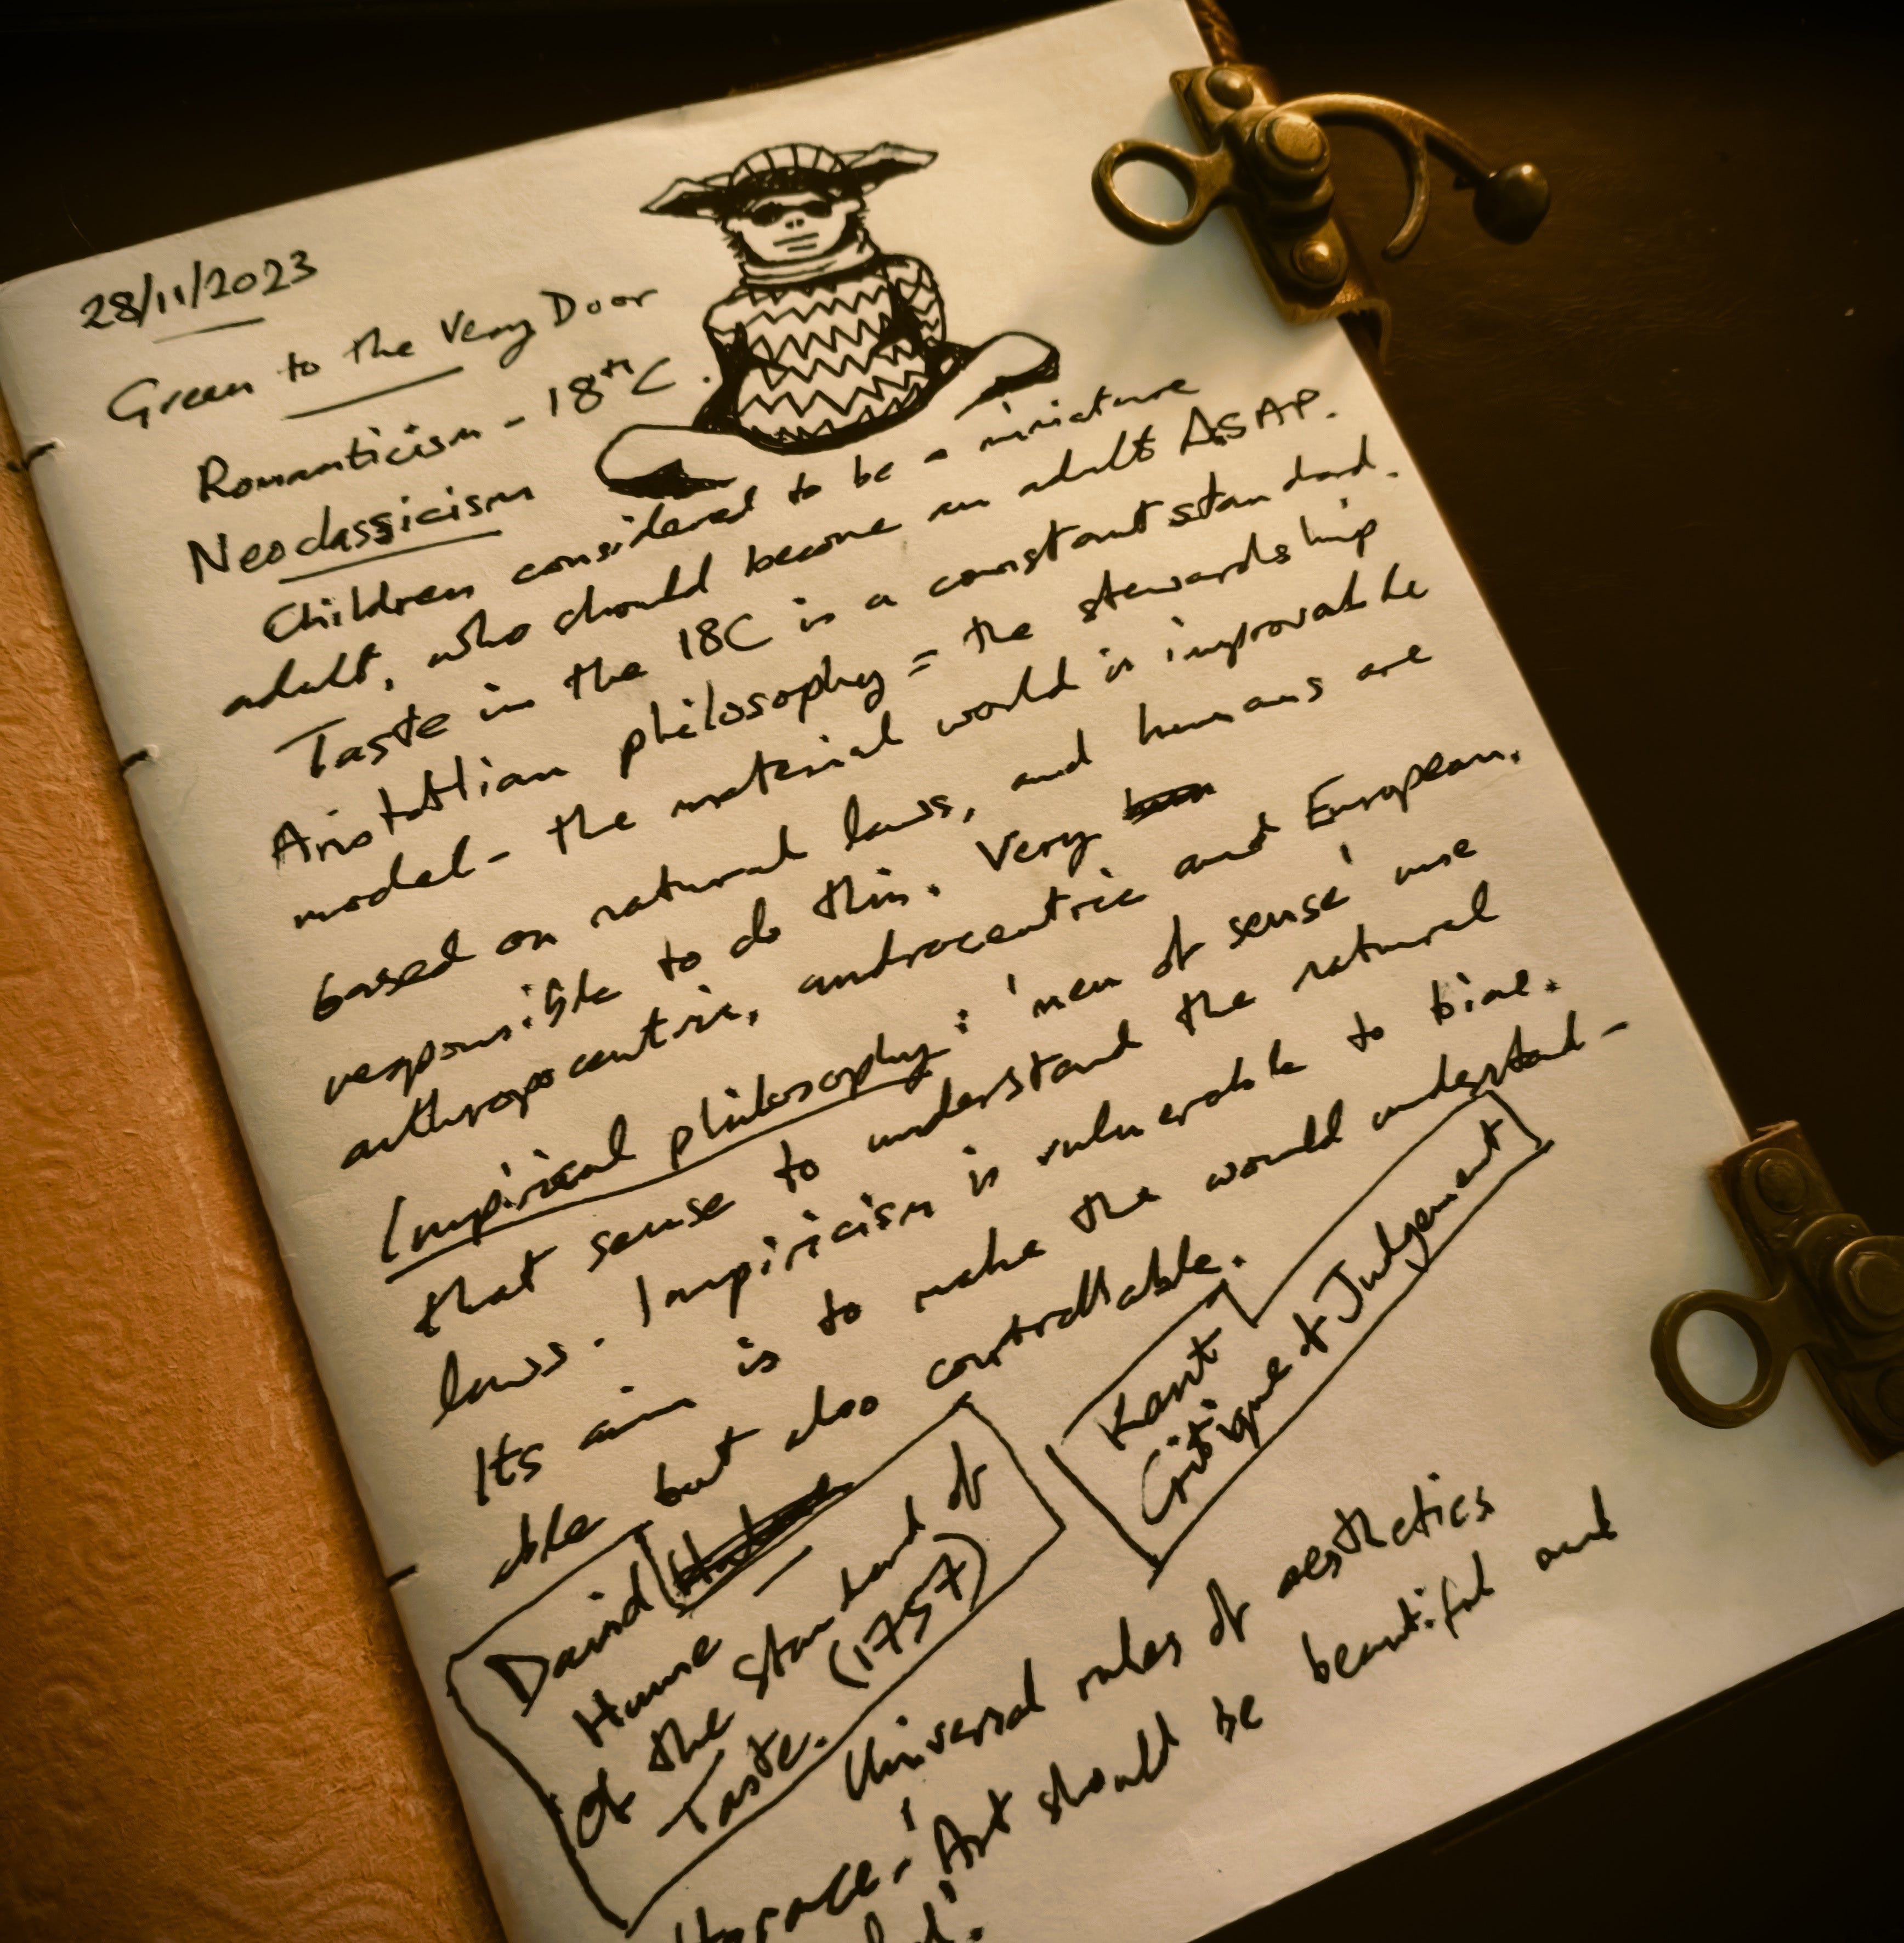 28/11/2023
Green to the Very Door
Romanticism - 18th C.
Neoclassicism
Children considered to be a miniature
adult, who should become an adult ASAP.
Taste in the 18C is a constant standard.
Aristotlian philosophy = the stewardship
model - the material world is improvable
based on natural laws, and humans are
responsible to do this. Very
anthropocentric, androcentric and European.
Impirical philosophy: 'men of sense' use
that sense to understand the natural
laws. Impiricism is vulnerable to bias.
Its aim is to make the would understand-
able but also controllable.
Kant
Critique of Judgement
David
Hume -
Of the Standard of
Taste. (1757)
Universal rules of aesthetics
Horace - 'Art should be beautiful and